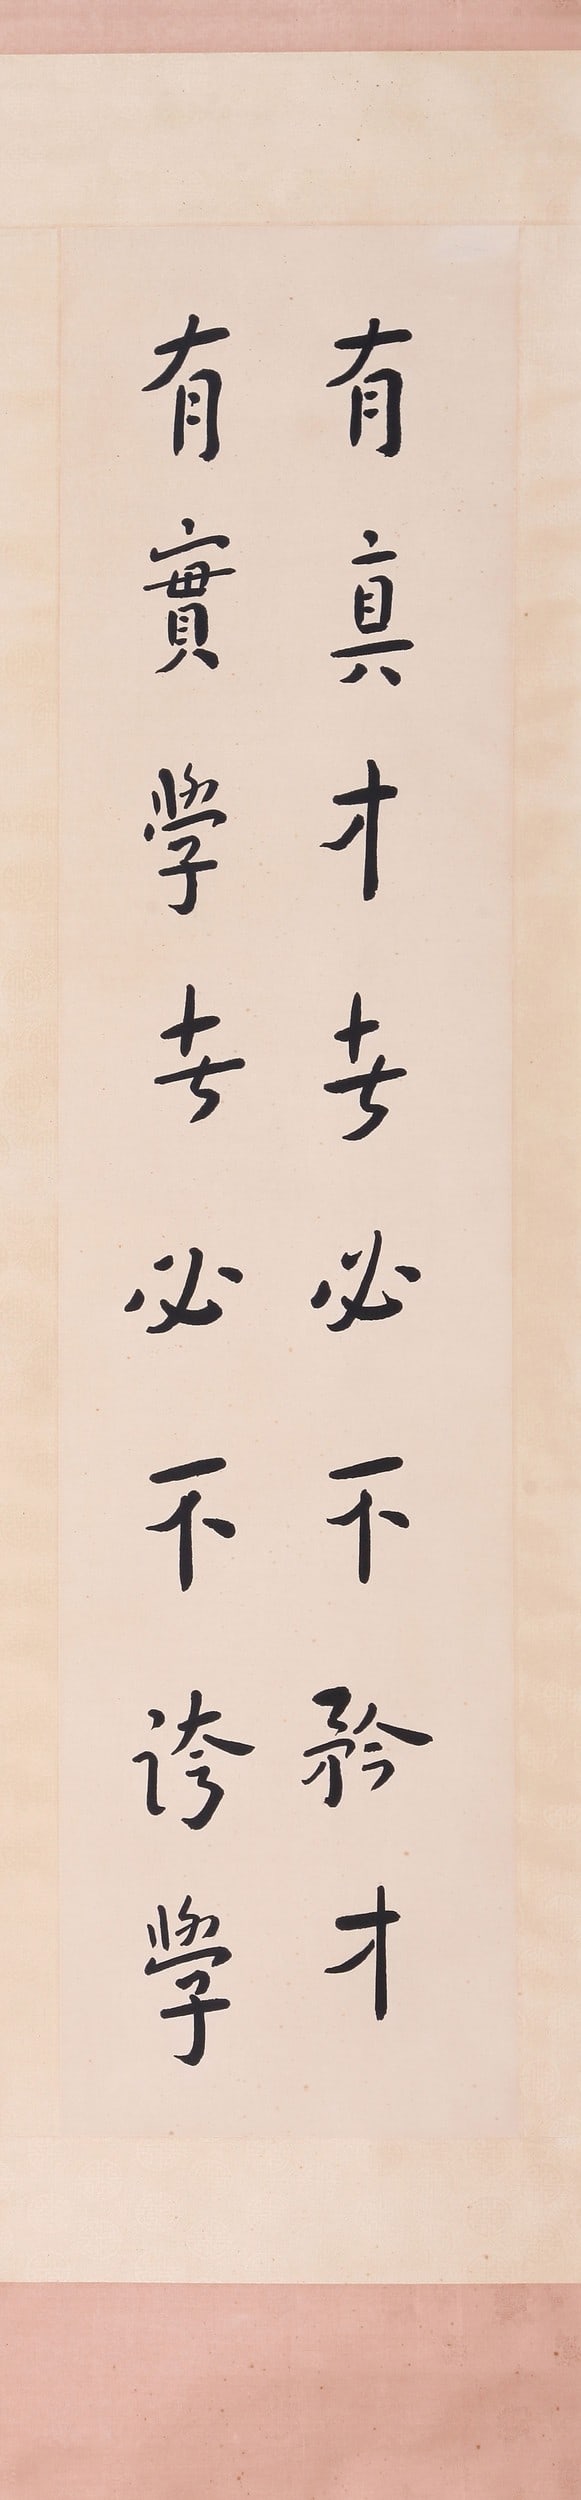 有真才者必不矜才
有實學者必不誇學